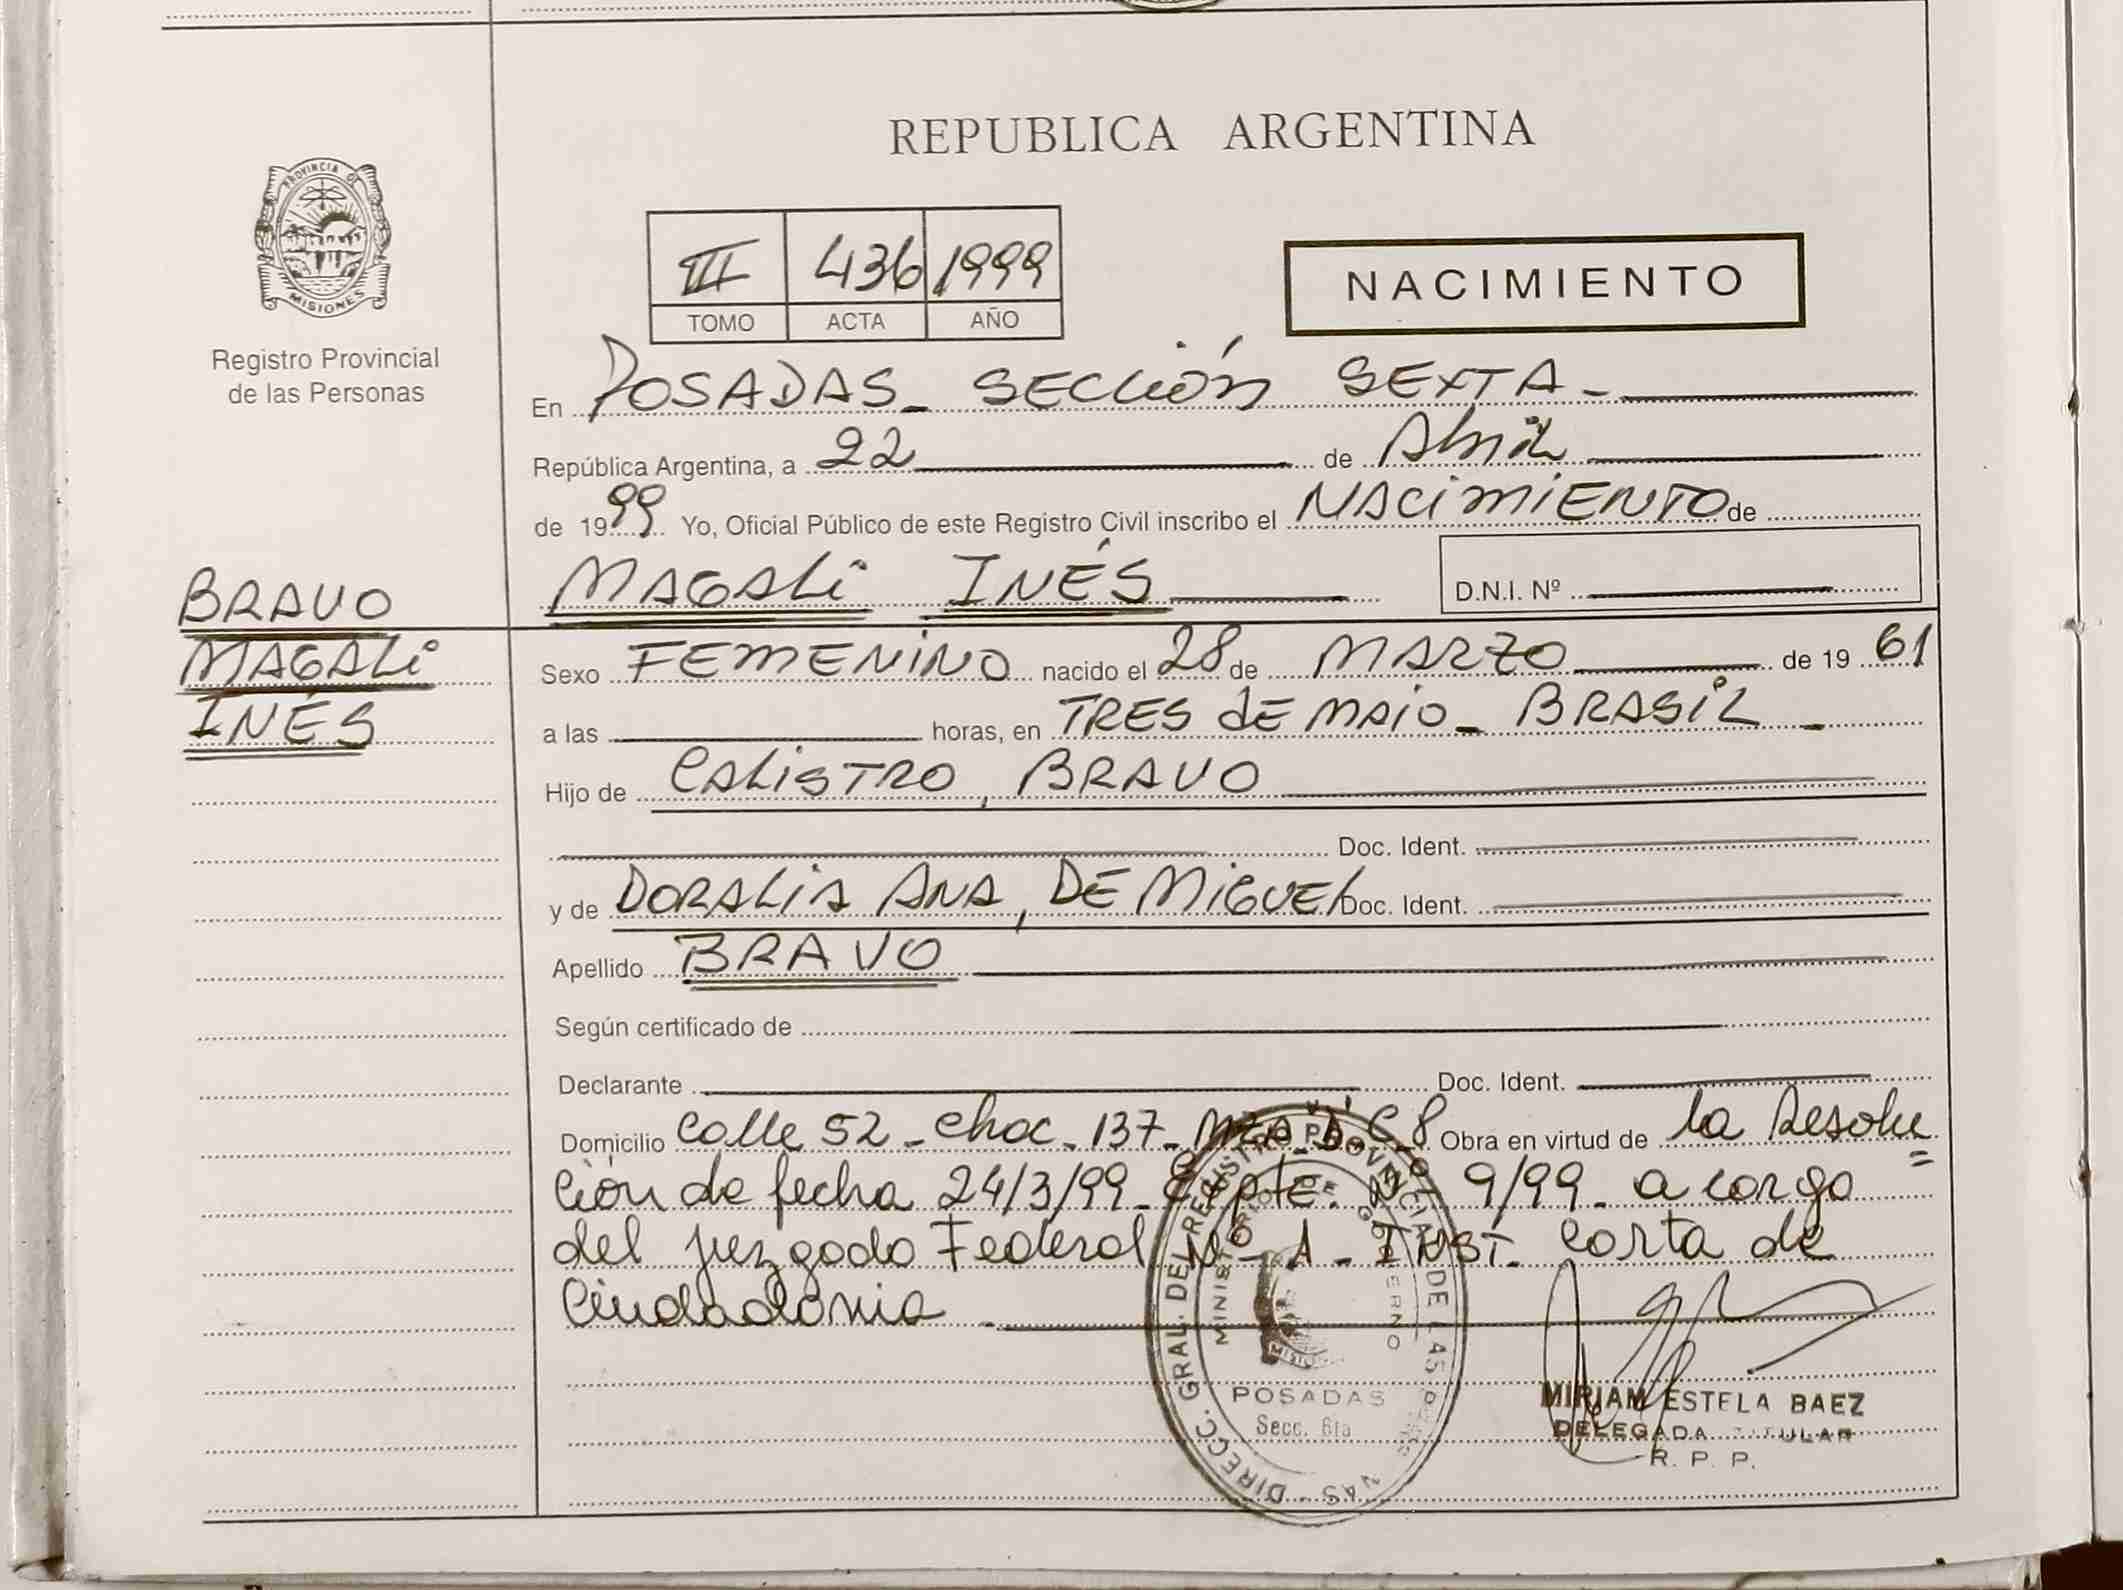 REPUBLICA ARGENTINA
PROVINCIA DE
MISIONES
Registro Provincial
de las Personas
III 436 1999
TOMO ACTA AÑO
NACIMIENTO
En POSADAS - SECCIÓN SEXTA -
República Argentina, a 22 de Abril
de 1999. Yo, Oficial Público de este Registro Civil inscribo el NACIMIENTO de
MAGALI INÉS
D.N.I. Nº
BRAVO
MAGALI
INÉS
Sexo FEMENINO nacido el 28 de MARZO de 19 61
a las horas, en TRES dE MAIO - BRASIL -
Hijo de CALISTRO, BRAVO
Doc. Ident.
y de DORALIA ANA, DE MIGUEL Doc. Ident.
Apellido BRAVO
Según certificado de
Declarante Doc. Ident.
Domicilio Calle 52 - choc - 137 - Mza - C 8 Obra en virtud de la Resolu
ción de fecha 24/3/99 - Expte. Nº 9/99 - a cargo
del juzgado Federal Nº - 1 - INST. Corta de
Ciudadania
DIRECC. GRAL. DEL REGISTRO PROVINCIAL DE LAS PERSONAS
MINISTERIO DE GOBIERNO
MISIONES
POSADAS
Secc. 6ta
MIRIAM ESTELA BAEZ
DELEGADA TITULAR
R. P. P.